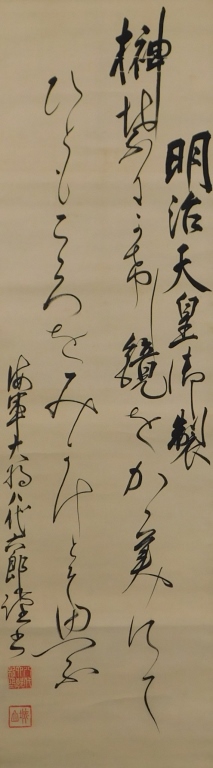 明治天皇御製
榊葉にかけし鏡をかゝみにて
ひともこころをみかけとそ思ふ
海軍大将八代六郎謹書